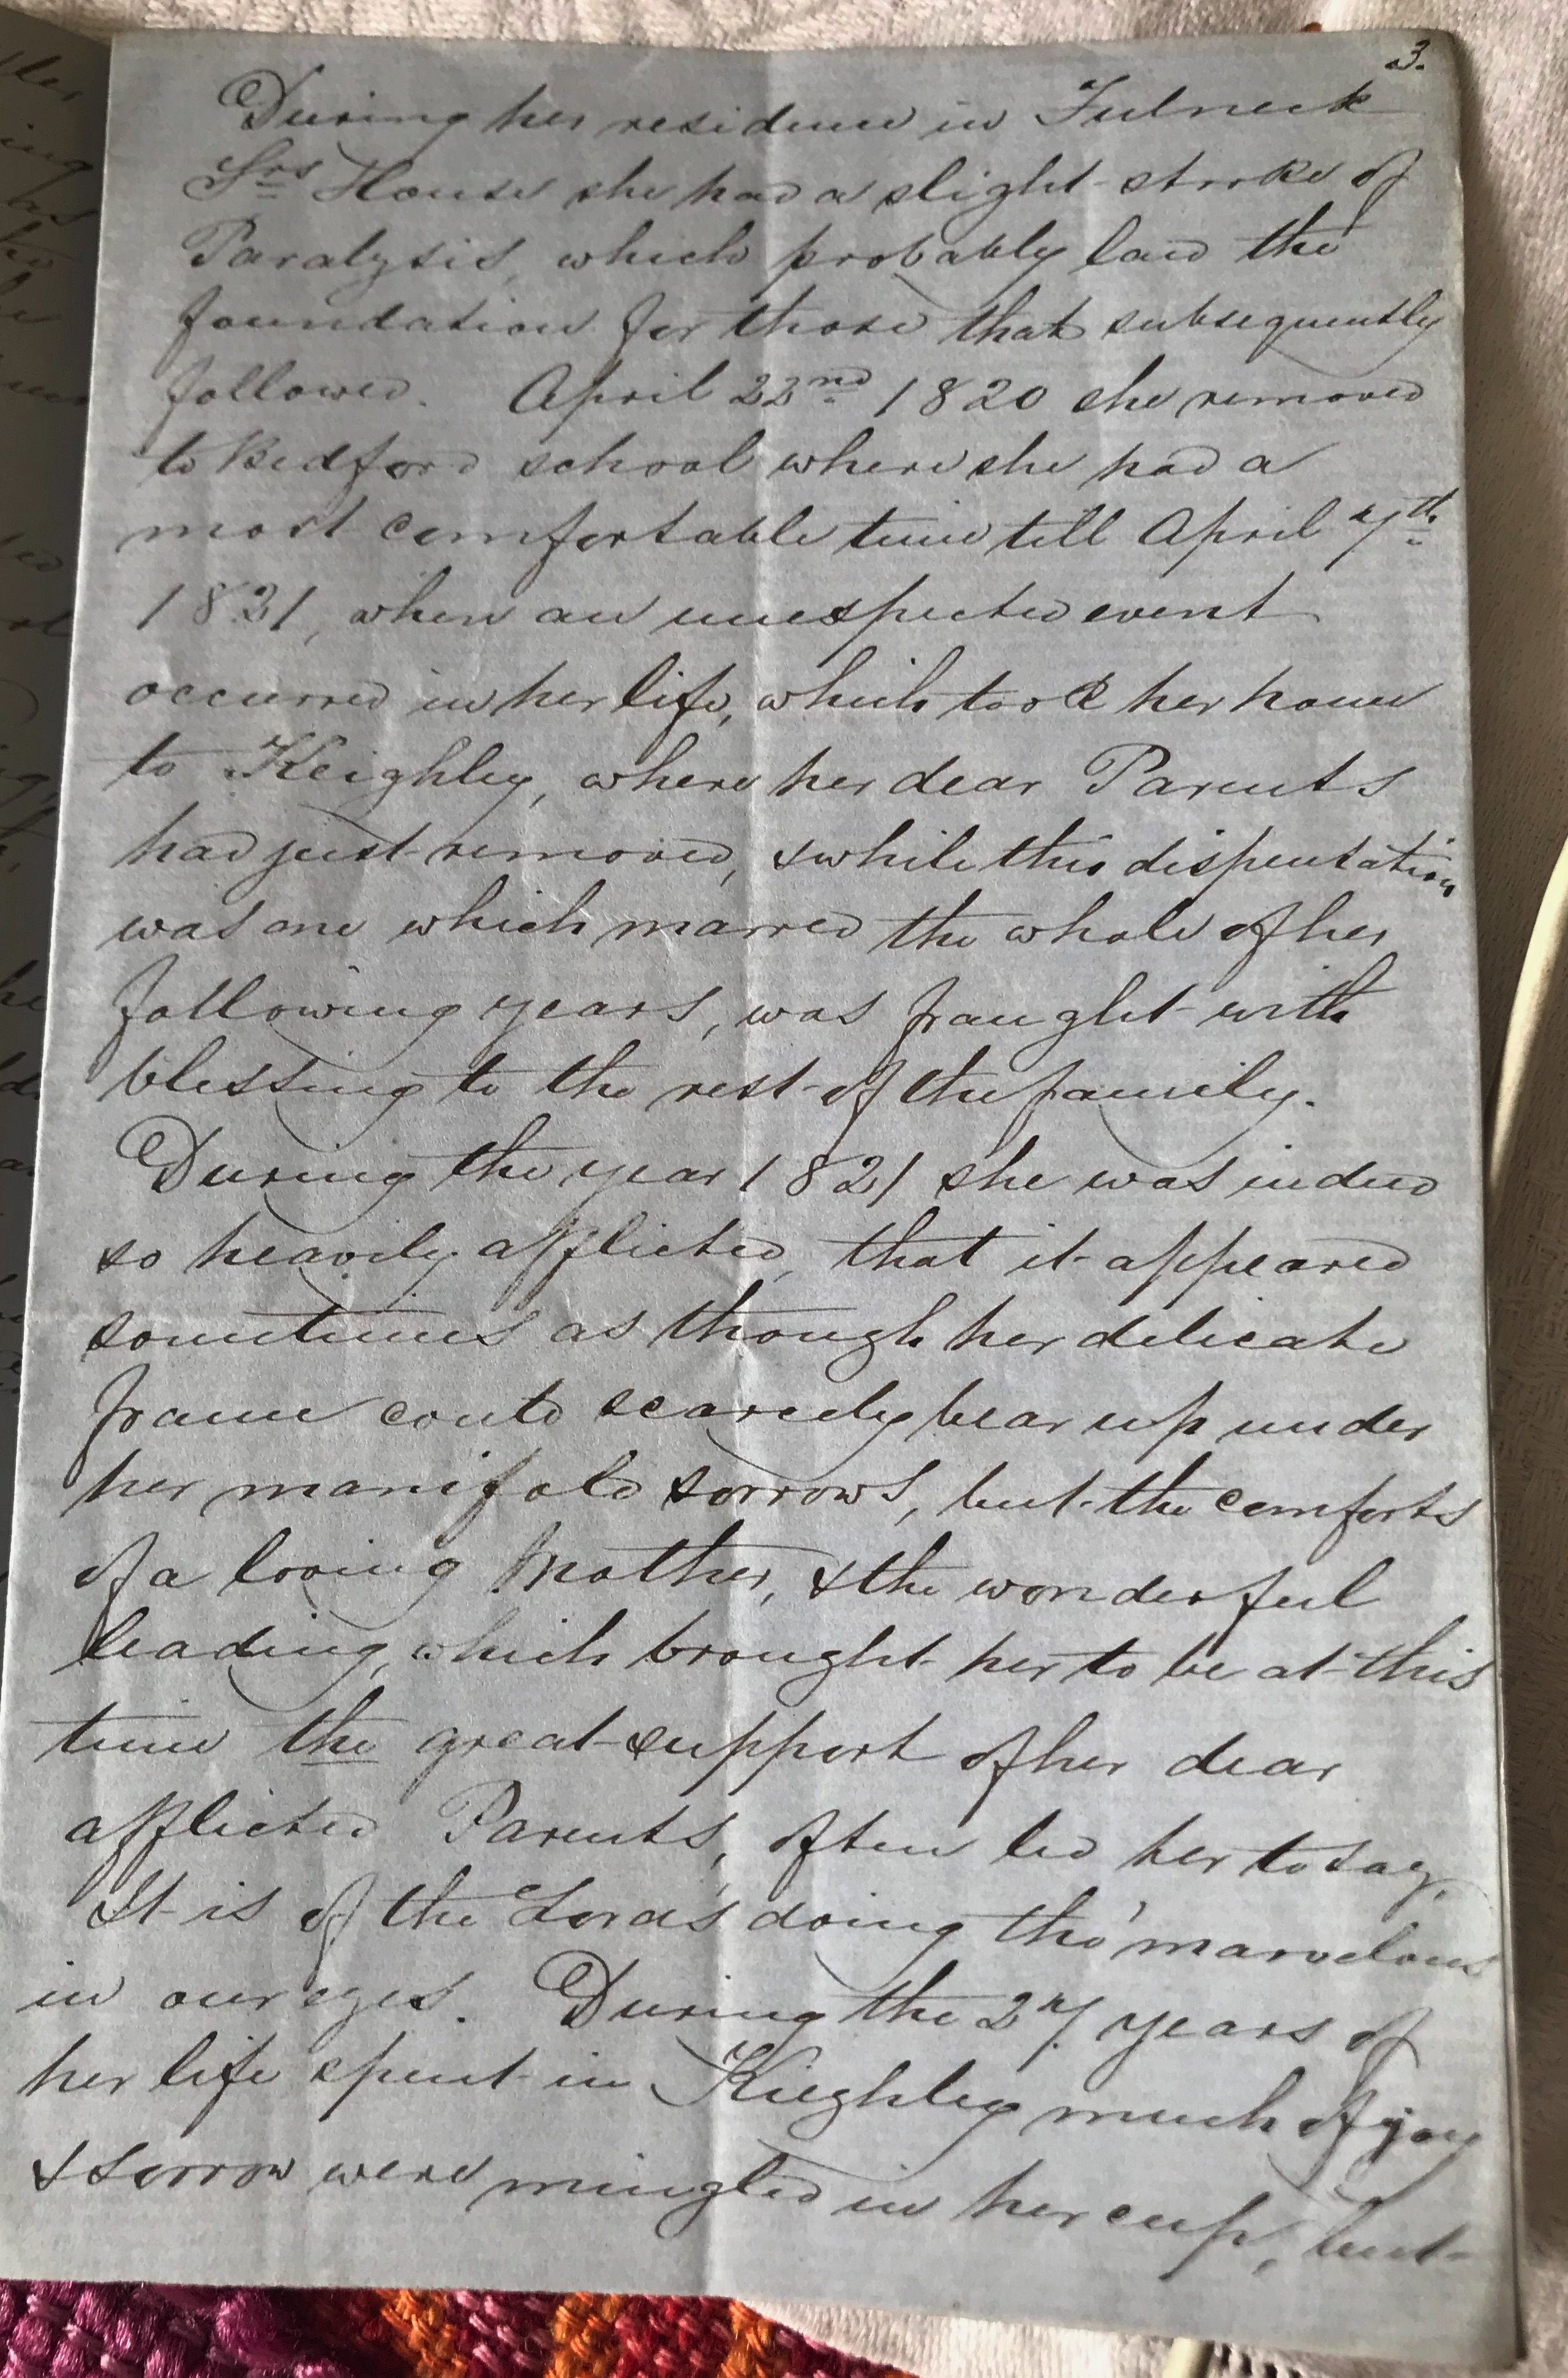 3.
During her residence in Fulneck
Srs House she had a slight stroke of
Paralysis, which probably laid the
foundation for those that subsequently
followed. April 22nd 1820 she removed
to Bedford school where she had a
most comfortable time till April 7th
1821, when an unexpected event
occurred in her life, which took her home
to Keighley, where her dear Parents
had just removed, & while this dispensation
was one which marred the whole of her
following years, was fraught with
blessing to the rest of the family.
During the year 1821 she was indeed
so heavily afflicted, that it appeared
sometimes as though her delicate
frame could scarcely bear up under
her manifold sorrows, but the comforts
of a loving Mother, & the wonderful
leading, which brought her to be at this
time the great support of her dear
afflicted Parents, often led her to say,
It is of the Lord's doing tho' marvelous
in our eyes. During the 27 years of
her life spent in Kieghley much of joy
& sorrow were mingled in her cup, but